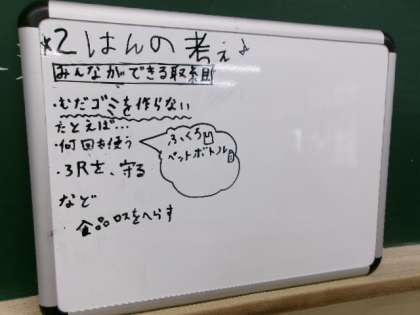 ★2はんの考え♪
みんなができる取組
・むだゴミを作らない
たとえば…
・何回も使う
ふくろ
ペットボトル
・3Rを、守る
など
食品ロスをへらす